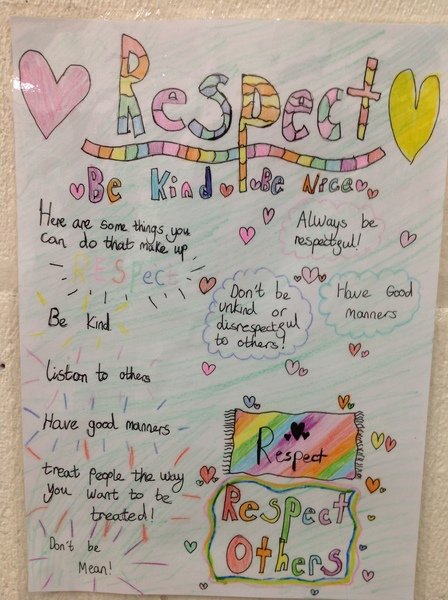 Respect
Be Kind Be Nice
Here are some things you
can do that make up
RESPect
Be Kind
listen to others
Have good manners
treat people the way
you want to be
treated!
Don't be
Mean!
Always be
respectful!
Don't be
unkind or
disrespectful
to others!
Have Good
manners
Respect
Respect
Others